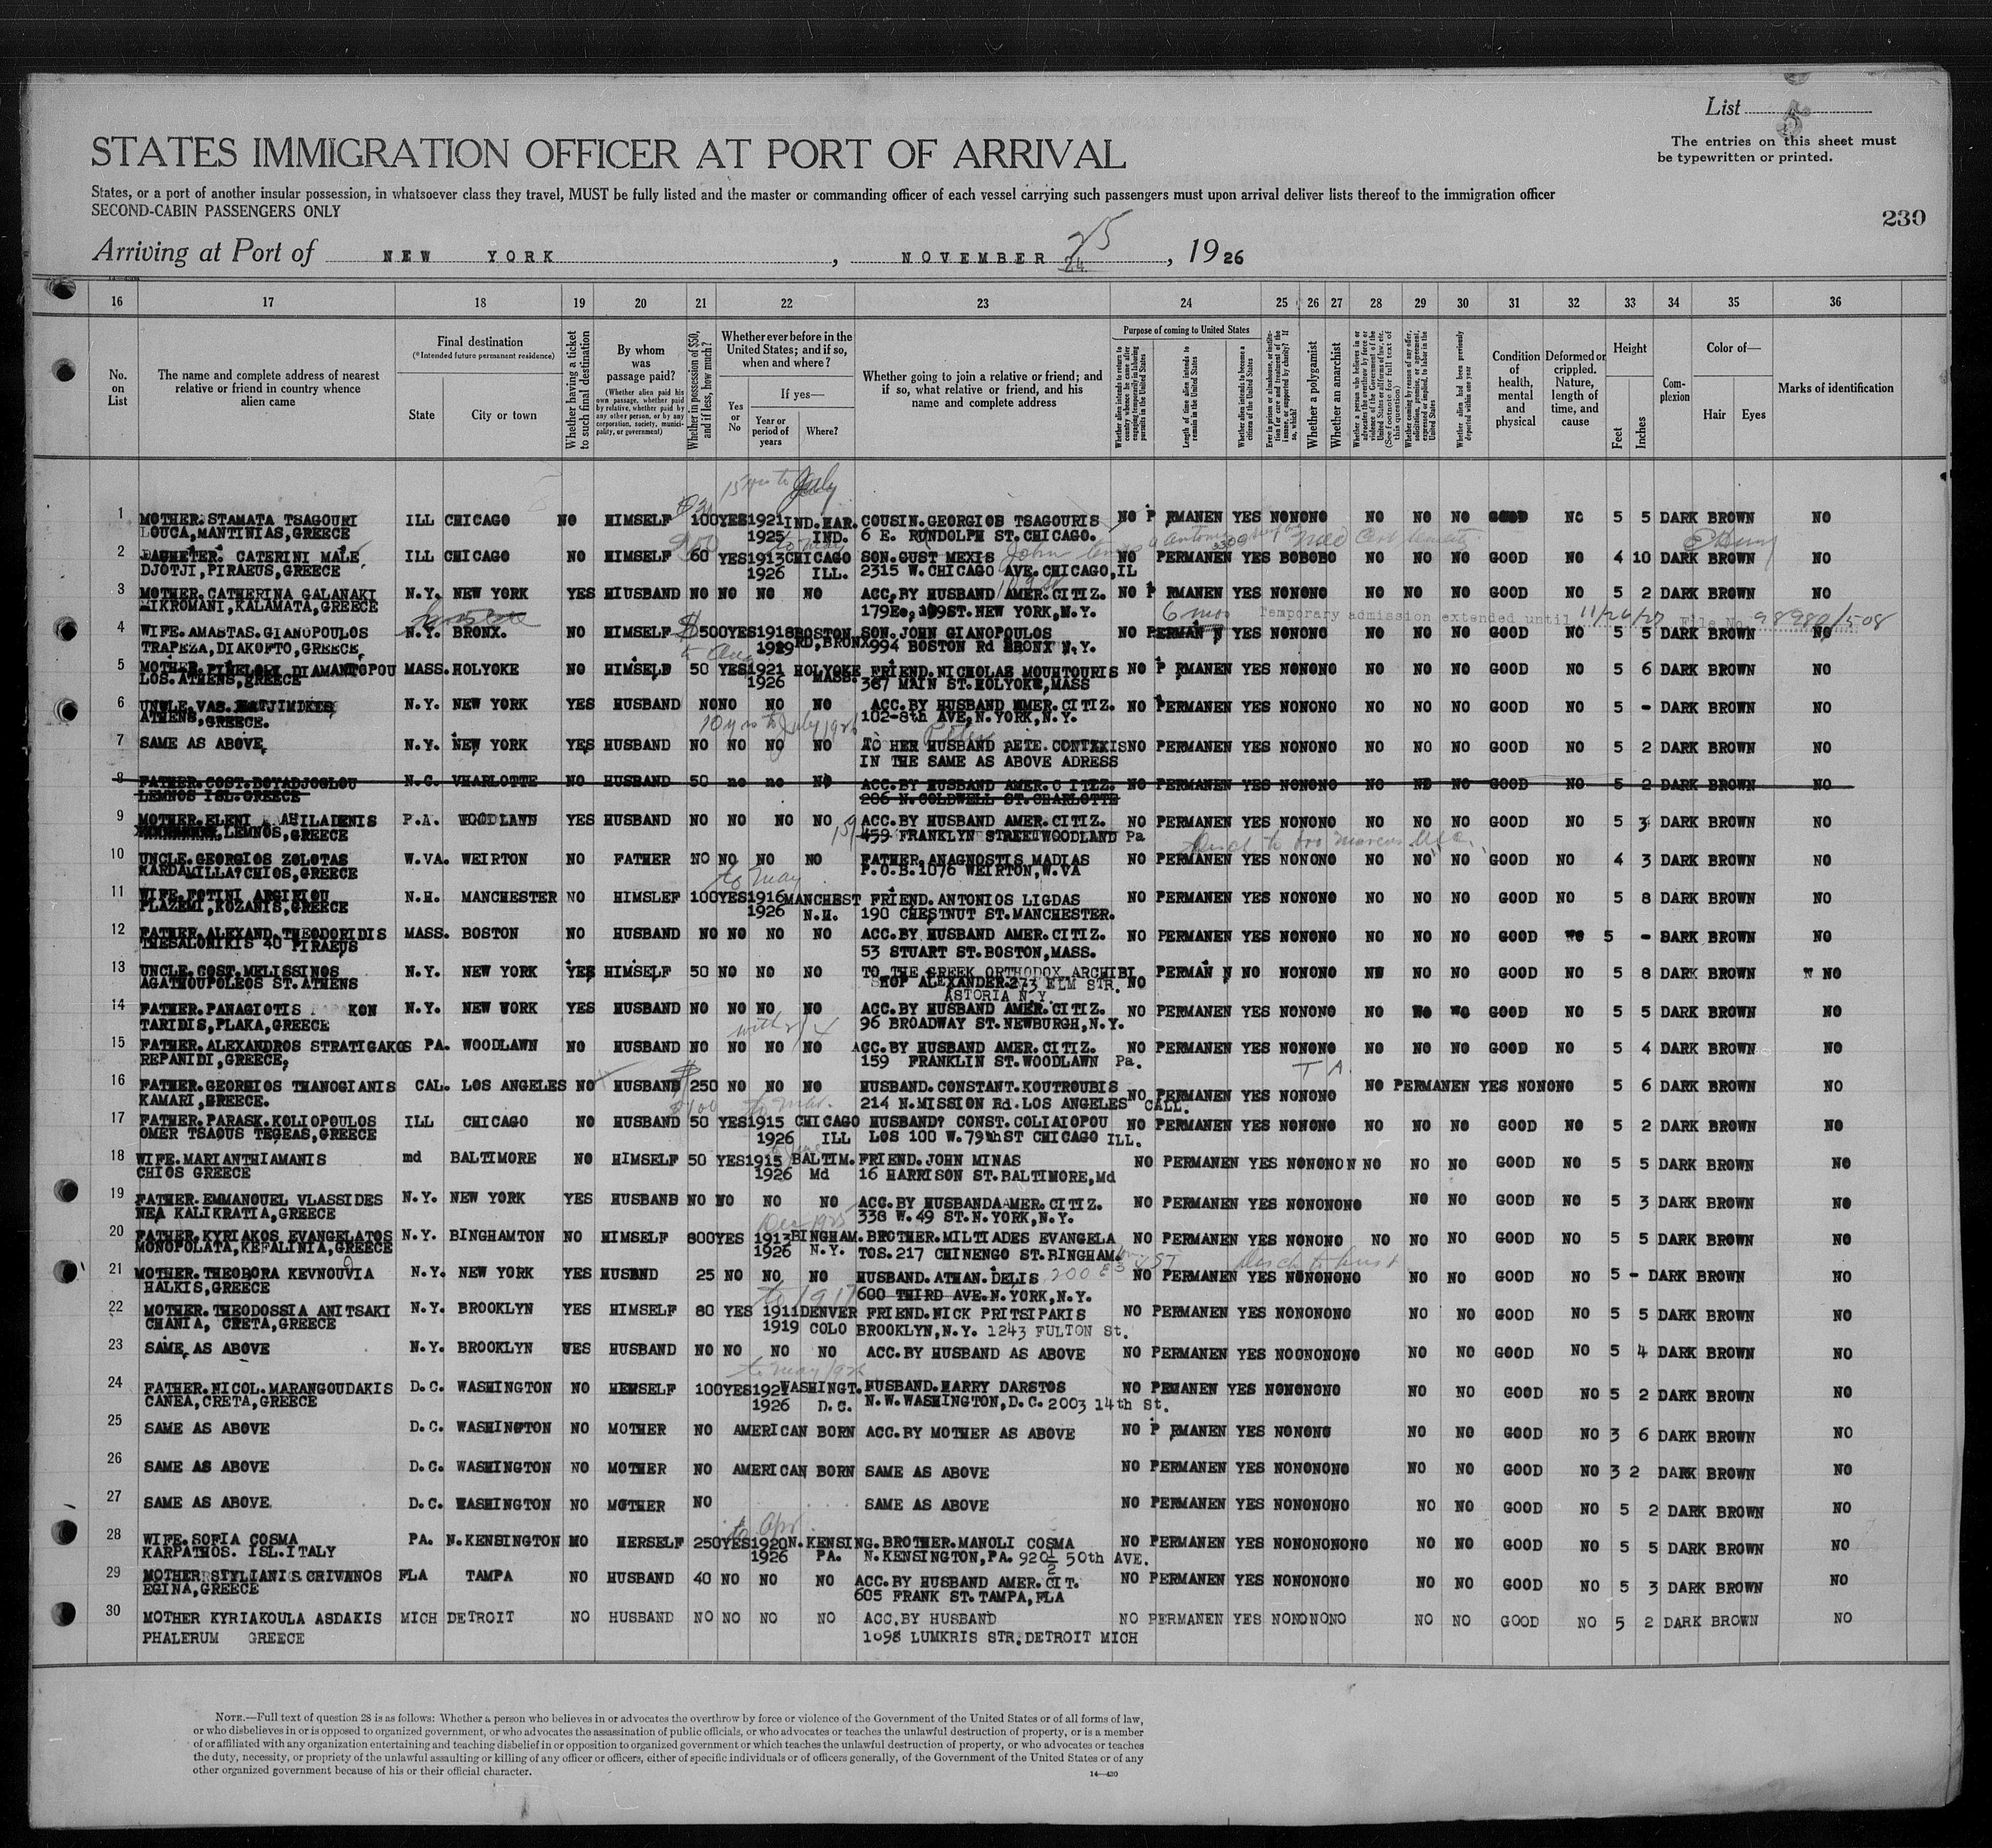 List 5
The entries on this sheet must
be typewritten or printed.
STATES IMMIGRATION OFFICER AT PORT OF ARRIVAL
States, or a port of another insular possession, in whatsoever class they travel, MUST be fully listed and the master or commanding officer of each vessel carrying such passengers must upon arrival deliver lists thereof to the immigration officer
SECOND-CABIN PASSENGERS ONLY
230
Arriving at Port of NEW YORK, NOVEMBER 25 24, 1926
16 17 18 19 20 21 22 23 24 25 26 27 28 29 30 31 32 33 34 35 36
No. on List
The name and complete address of nearest relative or friend in country whence alien came
Final destination
(*Intended future permanent residence)
State
City or town
Whether having a ticket to such final destination
By whom was passage paid?
(Whether alien paid his own passage, whether paid by relative, whether paid by any other person, or by any corporation, society, municipality, or government)
Whether in possession of $50, and if less, how much?
Whether ever before in the United States; and if so, when and where?
Yes or No
If yes—
Year or period of years
Where?
Whether going to join a relative or friend; and if so, what relative or friend, and his name and complete address
Purpose of coming to United States
Whether alien intends to return to country whence he came after engaging temporarily in laboring pursuits in the United States
Length of time alien intends to remain in the United States
Whether alien intends to become a citizen of the United States
Ever in prison or almshouse, or institution for care and treatment of the insane, or supported by charity? If so, which?
Whether a polygamist
Whether an anarchist
Whether a person who believes in or advocates the overthrow by force or violence of the Government of the United States or all forms of law, etc. (See footnote for full text of this question)
Whether coming by reason of any offer, solicitation, promise, or agreement, expressed or implied, to labor in the United States
Whether alien had been previously deported within one year
Condition of health, mental and physical
Deformed or crippled. Nature, length of time, and cause
Height
Feet
Inches
Complexion
Color of—
Hair
Eyes
Marks of identification
15 yrs to July
1 MOTHER.STAMATA TSAGOURI ILL CHICAGO NO HIMSELF 100 YES 1921 IND.HAR. COUSIN.GEORGIOS TSAGOURIS NO P RMANEN YES NONONO NO NO NO GOOD NO 5 5 DARK BROWN NO
LOUCA,MANTINIAS,GREECE 1925 IND. 6 E. RUNDOLPH ST.CHICAGO.
to May
2 CATERINI MALE ILL CHICAGO NO HIMSELF 60 YES 1913 CHICAGO SON.GUST MEXIS John NO PERMANEN YES BOBOBO NO NO NO GOOD NO 4 10 DARK BROWN NO
DJOTJI,PIRAEUS,GREECE 1926 ILL. 2315 W.CHICAGO AVE.CHICAGO,IL
3 MOTHER.CATHERINA GALANAKI N.Y. NEW YORK YES HIUSBAND NO NO NO NO ACC.BY HUSBAND AMER.CITIZ. NO P RMANEN YES NONONO NO NO NO GOOD NO 5 2 DARK BROWN NO
MIKROMANI,KALAMATA,GREECE 179E., ST.NEW YORK,N.Y.
6 mos Temporary admission extended until 11/26/27 File No. 98980/508
4 WIFE.AMASTAS.GIANOPOULOS N.Y. BRONX. NO HIMSELF $500 YES 1918 BOSTON SON.JOHN GIANOPOULOS NO PERMAN N YES NONONO NO NO NO GOOD NO 5 5 DARK BROWN NO
TRAPEZA,DIAKOFTO,GREECE 1919 RD,BRONX 994 BOSTON Rd BRONX N.Y.
to Aug
5 MOTHER. DIAMANTOPOU MASS. HOLYOKE NO HIMSELD 50 YES 1921 HOLYOKE FRIEND.NICHOLAS MOUHTOURIS NO P RMANEN YES NONONO NO NO NO GOOD NO 5 6 DARK BROWN NO
LOS.ATHENS,GREECE 1926 MASS. 387 MAIN ST.HOLYOKE,MASS
6 UNCLE.VAS. N.Y. NEW YORK YES HUSBAND NO NO NO NO ACC.BY HUSBAND MMER.CITIZ. NO PERMANEN YES NONONO NO NO NO GOOD NO 5 - DARK BROWN NO
ATHENS,GREECE. 102-8th AVE,N.YORK,N.Y.
10 yrs to July 1926 Peter
7 SAME AS ABOVE, N.Y. NEW YORK YES HUSBAND NO NO NO NO TO HER HUSBAND PETE.CONTAKIS NO PERMANEN YES NONONO NO NO NO GOOD NO 5 2 DARK BROWN NO
IN THE SAME AS ABOVE ADRESS
8 FATHER.COST.BOYADJOGLOU N.C. VHARLOTTE NO HUSBAND 50 no no NO ACC.BY HUSBAND AMER.C ITIZ. NO PERMANEN YES NONONO NO NO NO GOOD NO 5 2 DARK BROWN NO
LEMNOS ISL.GREECE 206 N.COLDWELL ST.CHARLOTTE
9 MOTHER.ELENI P.A. WOODLAND YES HUSBAND NO NO NO NO ACC.BY HUSBAND AMER.CITIZ. NO PERMANEN YES NONONO NO NO NO GOOD NO 5 3 DARK BROWN NO
LEMNOS,GREECE 159 459 FRANKLYN STREETWOODLAND Pa
10 UNCLE.GEORGIOS ZOLOTAS W.VA. WEIRTON NO FATHER NO NO NO NO FATHER.ANAGNOSTIS MADIAS NO PERMANEN YES NONONO NO NO NO GOOD NO 4 3 DARK BROWN NO
KARDAMILLA?CHIOS,GREECE P.O.B.1076 WEIRTON,W.VA
to May
11 WIFE.FOTINI ARGIRIOU N.H. MANCHESTER NO HIMSLEF 100 YES 1916 MANCHEST FRIEND.ANTONIOS LIGDAS NO PERMANEN YES NONONO NO NO NO GOOD NO 5 8 DARK BROWN NO
PLAZEMI,KOZANIS,GREECE 1926 N.H. 190 CHESTNUT ST.MANCHESTER.
12 FATHER.ALEXAND.THEODORIDIS MASS. BOSTON NO HUSBAND NO NO NO NO ACC.BY HUSBAND AMER.CITIZ. NO PERMANEN YES NONONO NO NO NO GOOD NO 5 - DARK BROWN NO
THESALONIKIS 40 PIRAEUS 53 STUART ST.BOSTON,MASS.
13 UNCLE.COST.MELISSINOS N.Y. NEW YORK YES HIMSELF 50 NO NO NO TO THE GREEK ORTHODOX ARCHIBI PERMAN N NO NONONO NO NO NO GOOD NO 5 8 DARK BROWN NO
AGATHOUPOLEOS ST.ATHENS SHOP ALEXANDER.273 ELM STR. NO
ASTORIA N.Y.
14 FATHER.PANAGIOTIS KON N.Y. NEW WORK YES HUSBAND NO NO NO NO ACC.BY HUSBAND AMER.CITIZ. NO PERMANEN YES NONONO NO NO NO GOOD NO 5 5 DARK BROWN NO
TARIDIS,PLAKA,GREECE 96 BROADWAY ST.NEWBURGH,N.Y.
15 FATHER.ALEXANDROS STRATIGAKOS PA. WOODLAWN NO HUSBAND NO NO NO NO ACC.BY HUSBAND AMER.CITIZ. NO PERMANEN YES NONONO NO NO NO GOOD NO 5 4 DARK BROWN NO
REPANIDI,GREECE, 159 FRANKLIN ST.WOODLAWN Pa.
16 FATHER.GEORGIOS THANOGIANIS CAL. LOS ANGELES NO HUSBAND $250 NO NO NO HUSBAND.CONSTANT.KOUTROUBIS NO PERMANEN YES NONONO NO PERMANEN YES NONONO 5 6 DARK BROWN NO
KAMARI,GREECE. 214 N.MISSION Rd.LOS ANGELES CALL.
$100 to Mar.
17 FATHER.PARASK.KOLIOPOULOS ILL CHICAGO NO HUSBAND 50 YES 1915 CHICAGO HUSBAND? CONST.COLIAIOPOU NO PERMANEN YES NONONO NO NO NO GOOD NO 5 2 DARK BROWN NO
OMER TSAOUS TEGEAS,GREECE 1926 ILL LOS 100 W.79thST CHICAGO ILL.
18 WIFE.MARIANTHIAMANIS md BALTIMORE NO HIMSELF 50 YES 1915 BALTIM. FRIEND.JOHN MINAS NO PERMANEN YES NONONON NO NO NO GOOD NO 5 5 DARK BROWN NO
CHIOS GREECE 1926 Md 16 HARRISON ST.BALTIMORE,Md
19 FATHER.EMMANOUEL VLASSIDES N.Y. NEW YORK YES HUSBAND NO NO NO NO ACC.BY HUSBANDAAMER.CITIZ. NO PERMANEN YES NONONONO NO NO GOOD NO 5 3 DARK BROWN NO
NEA KALIKRATIA,GREECE 338 W.49 ST.N.YORK,N.Y.
Dec 1925
20 FATHER.KYRIAKOS EVANGELATOS N.Y. BINGHAMTON NO HIMSELF 800 YES 1913 BINGHAM. BROTHER.MILTIADES EVANGELA NO PERMANEN YES NONONO NO NO NO GOOD NO 5 5 DARK BROWN NO
MONOPOLATA,KEFALINIA,GREECE 1926 N.Y. TOS.217 CHINENGO ST.BINGHAM.
21 MOTHER.THEODORA KEVNOUVIA N.Y. NEW YORK YES HUSBND 25 NO NO NO HUSBAND.ATHAN.DELIS NO PERMANEN YES NONONONO NO NO GOOD NO 5 - DARK BROWN NO
HALKIS,GREECE 600 THIRD AVE.N.YORK,N.Y.
to 1917
22 MOTHER.THEODOSSIA ANITSAKI N.Y. BROOKLYN YES HIMSELF 80 YES 1911 DENVER FRIEND.NICK PRITSIPAKIS NO PERMANEN YES NONONO NO NO GOOD NO 5 5 DARK BROWN NO
CHANIA, CRETA,GREECE 1919 COLO BROOKLYN,N.Y. 1243 FULTON St.
23 SAME AS ABOVE N.Y. BROOKLYN YES HUSBAND NO NO NO NO ACC.BY HUSBAND AS ABOVE NO PERMANEN YES NOONONONO NO NO GOOD NO 5 4 DARK BROWN NO
to May 1926
24 FATHER.NICOL.MARANGOUDAKIS D.C. WASHINGTON NO HEMSELF 100 YES 1921 WASHINGT. HUSBAND.HARRY DARSTOS NO PEMANEN YES NONONONO NO NO GOOD NO 5 2 DARK BROWN NO
CANEA,CRETA,GREECE 1926 D.C. N.W.WASHINGTON,D.C. 2003 14th St.
25 SAME AS ABOVE D.C. WASHINGTON NO MOTHER NO AMERICAN BORN ACC.BY MOTHER AS ABOVE NO P RMANEN YES NONONO NO NO GOOD NO 3 6 DARK BROWN NO
26 SAME AS ABOVE D.C. WASHINGTON NO MOTHER NO AMERICAN BORN SAME AS ABOVE NO PERMANEN YES NONONONO NO NO GOOD NO 3 2 DARK BROWN NO
27 SAME AS ABOVE D.C. WASHINGTON NO MOTHER NO SAME AS ABOVE NO PERMANEN YES NONONONO NO NO GOOD NO 5 2 DARK BROWN NO
to Apr
28 WIFE.SOFIA COSMA PA. N.KENSINGTON NO HERSELF 250 YES 1920 N.KENSING. BROTHER.MANOLI COSMA NO PERMANEN YES NONONONO NO NO GOOD NO 5 5 DARK BROWN NO
KARPATHOS. ISL.ITALY 1926 PA. N.KENSINGTON,PA. 920½ 50th AVE.
29 MOTHER STYLIANIS CRIVANOS FLA TAMPA NO HUSBAND 40 NO NO NO ACC.BY HUSBAND AMER.CIT. NO PERMANEN YES NONONONO NO NO GOOD NO 5 3 DARK BROWN NO
EGINA,GREECE 605 FRANK ST.TAMPA,FLA
30 MOTHER KYRIAKOULA ASDAKIS MICH DETROIT NO HUSBAND NO NO NO NO ACC.BY HUSBAND NO PERMANEN YES NONONONO NO NO GOOD NO 5 2 DARK BROWN NO
PHALERUM GREECE 1098 LUMKRIS STR.DETROIT MICH
NOTE.—Full text of question 28 is as follows: Whether a person who believes in or advocates the overthrow by force or violence of the Government of the United States or of all forms of law,
or who disbelieves in or is opposed to organized government, or who advocates the assassination of public officials, or who advocates or teaches the unlawful destruction of property, or is a member
of or affiliated with any organization entertaining and teaching disbelief in or opposition to organized government or which teaches the unlawful destruction of property, or who advocates or teaches
the duty, necessity, or propriety of the unlawful assaulting or killing of any officer or officers, either of specific individuals or of officers generally, of the Government of the United States or of any
other organized government because of his or their official character.
14—430